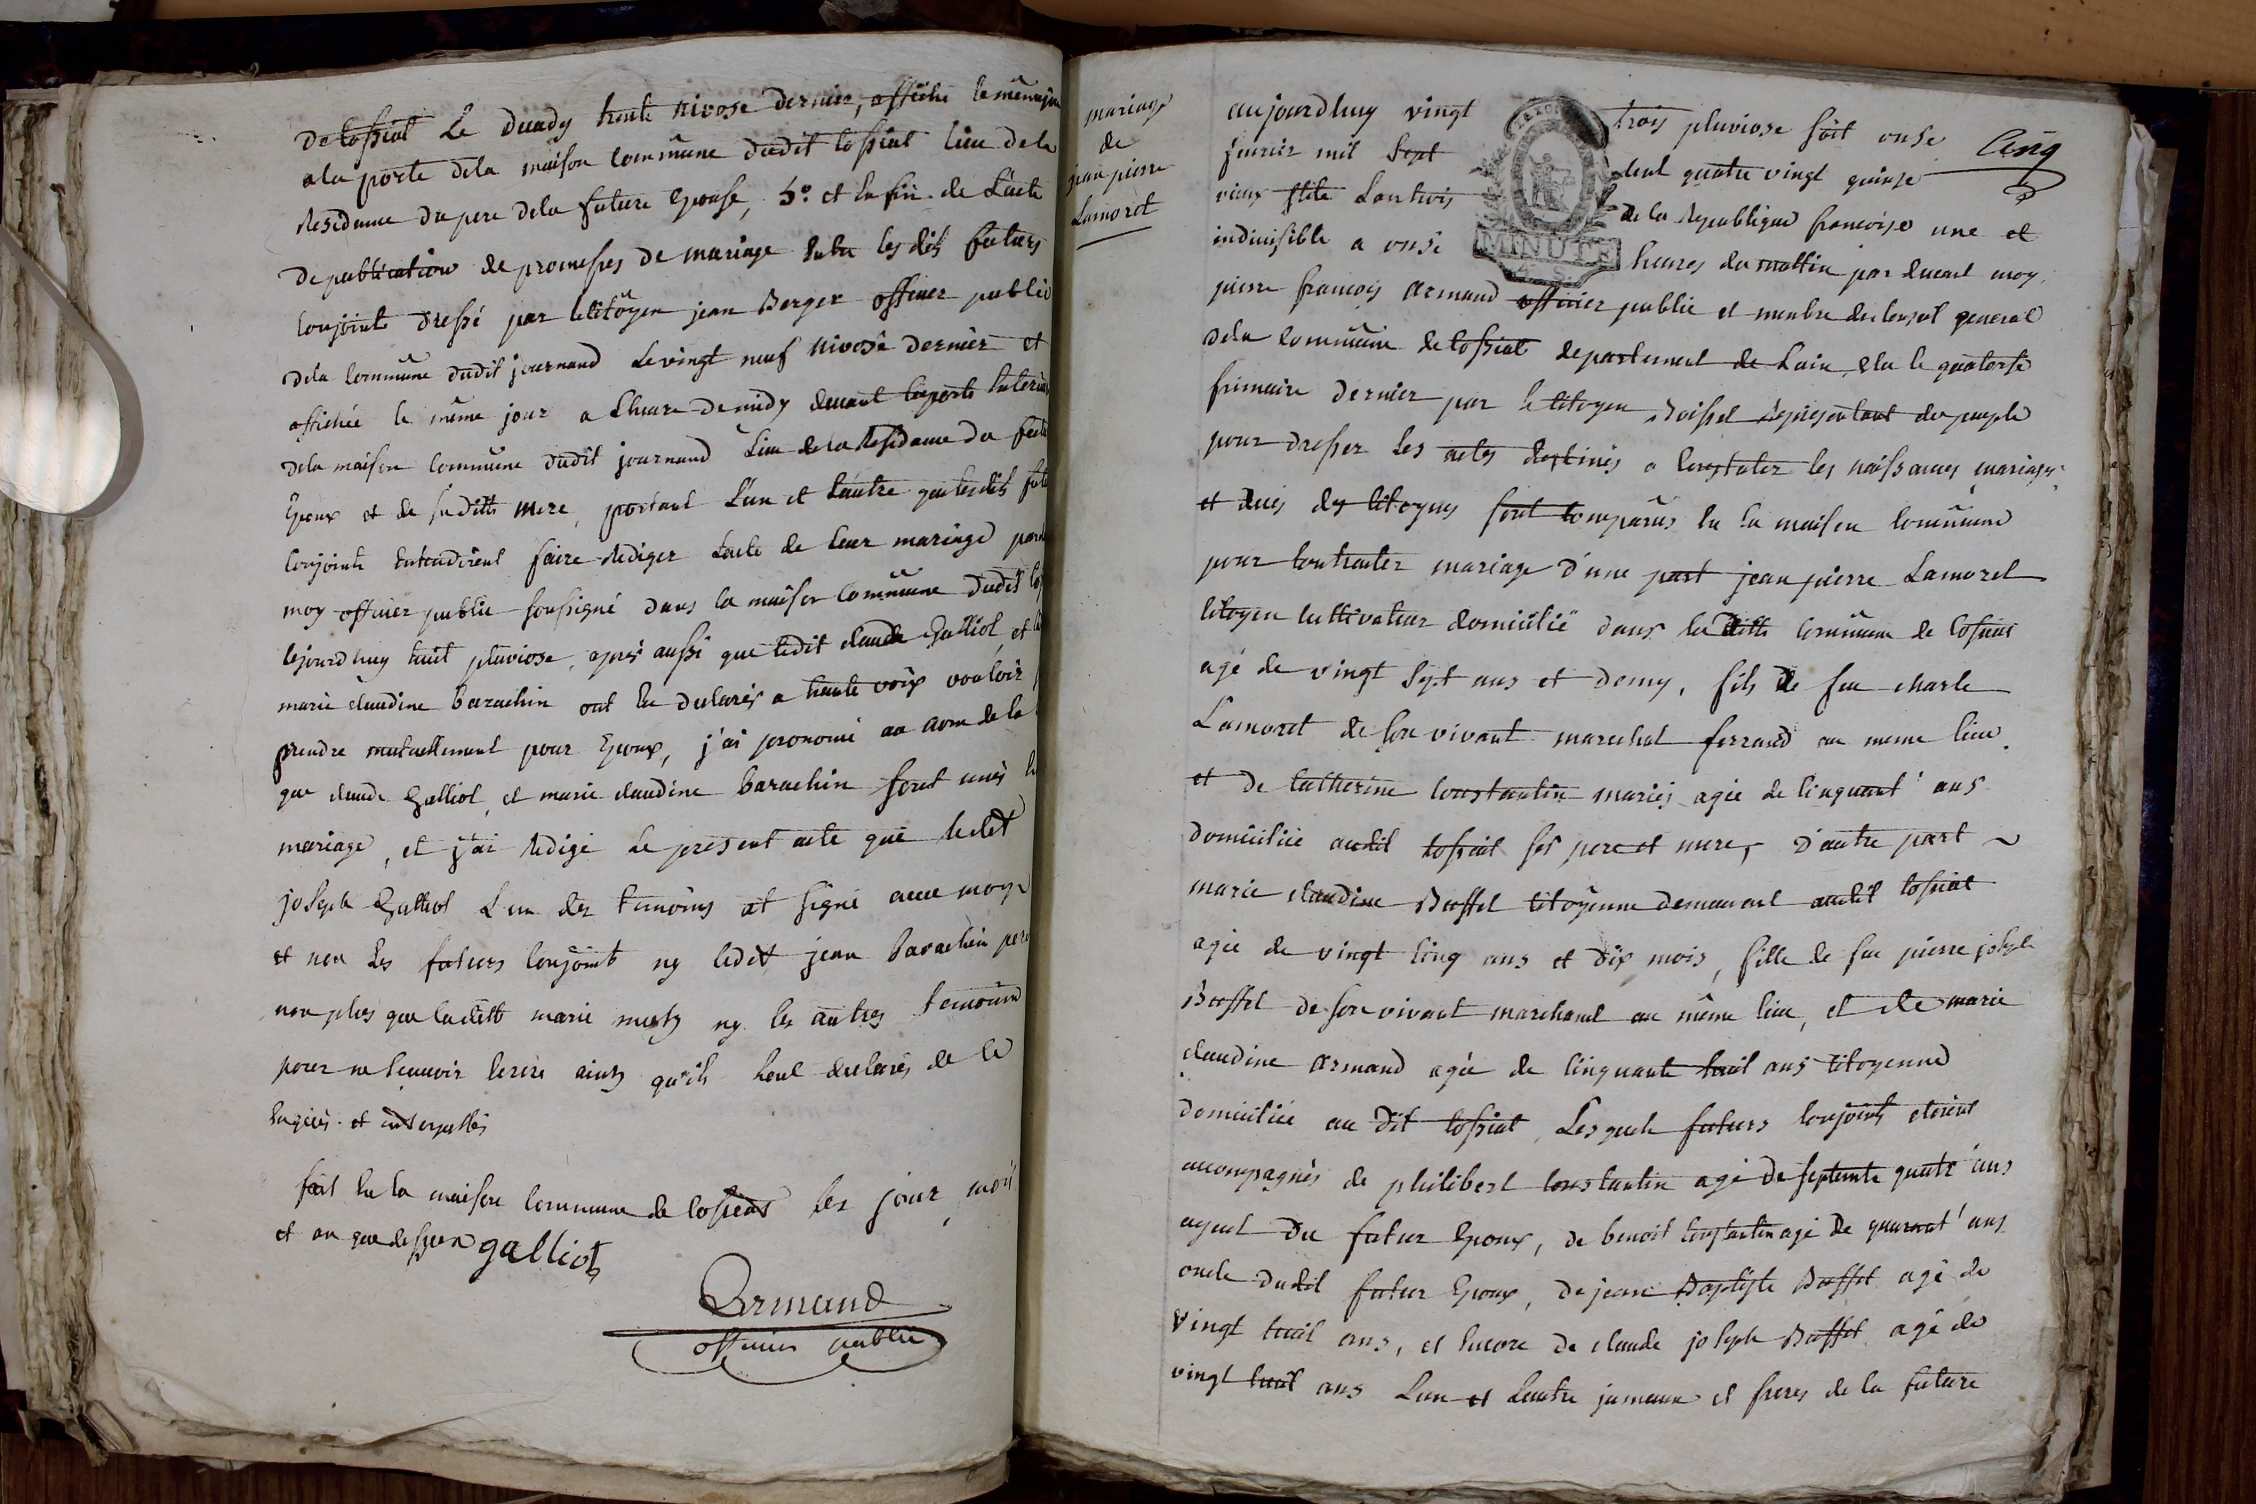 de Cossiat Le decady trente nivose dernier, affiché le même jour
a la porte dela maison Commûne dudit Cossiat lieu de la
Residence du pere dela future Epouse, 5.° et la fin de L'acte
de publication de promesses de mariage Entre les dits futurs
Conjoints dressé par le Citoÿen jean Berger officier public
dela Commune dudit journand Le vingt neuf nivose dernier et
affichée le même jour a L'heure de midy devant laporte
dela maison Commûne dudit journand Lieu de la Residence du futur
Epoux et de sa ditte mere, portant L'un et Lautre que lesdits futurs
Conjoints Entendirent faire Rediger Lacte de leur mariage
moy officier public soussigné dans la maison Commune dudit
cejourdhuy huit pluviose, apres aussi que ledit claude Galliot, et la
marie claudine barachin ont Eu declarés a haute voix vouloir se
prendre mutuellement pour Epoux, j'ai prononcé au nom de la
que claude Galliot, et marie claudine barachin sont unis En
mariage, et j'ai redigé le present acte que ledit
joseph Galliot L'un des temoins at signé avec moy
et non Les futurs Conjoints ny ledit jean barachin pere
non plus que laditte marie ny les autres temoins
pour ne scavoir Ecrire ainsy qu'ils L'ont declarés de ce
Enquis et interpellés
fait En la maison Commune de Cossiat les jour, mois
et an que dessus galliot
Armand
officier public
mariage
de
jean pierre
Lamoret
aujourdhuy vingt trois pluviose soit onse
fevrier mil Sept Cent quatre vingt quinze
vieux stile Lan trois de la Republique francoise une et
indivisible a onse heures du mattin par devant moy
pierre francois Armand officier public et membre du Conseil general
dela Commûne de Cossiat departement de Lain, Elu le quatorse
frimaire dernier par le Citoyen Boisset Representant du peuple
pour dresser les actes destinés a Constater les naissances mariages
et decès des Citoyens sont Comparus En la maison Commûne
pour Contracter mariage d'une part jean pierre Lamoret
Citoyen Cultivateur domicilié dans la ditte Commune de Cossiat
agé de vingt Sept ans et demy, fils de feu charle
Lamoret de son vivant marechal ferrand au meme lieu
et de Catherine Constantin mariés agée de Cinquant' ans
domiciliée audit Cossiat ses pere et mere, d'autre part
marie claudine Boeffet Citoÿenne demeurant audit Cossiat
agée de vingt Cinq ans et dix mois, fille de feu pierre joseph
Boeffet de son vivant marchand au même lieu, et de marie
claudine Armand agée de Cinquante huit ans Citoyenne
domiciliée au dit Cossiat, Lesquels futurs Conjoints etoient
accompagnés de philibert Constantin agé de septente quatr' ans
ayeul du futur Epoux, de benoit Constantin agé de quarant' ans
oncle dudit futur Epoux, de jean Baptiste Boeffet agé de
vingt huit ans, et Encore de claude joseph Boeffet agé de
vingt huit ans Lun et Lautre jumeaux et freres de la future
Cinq
MINUTE